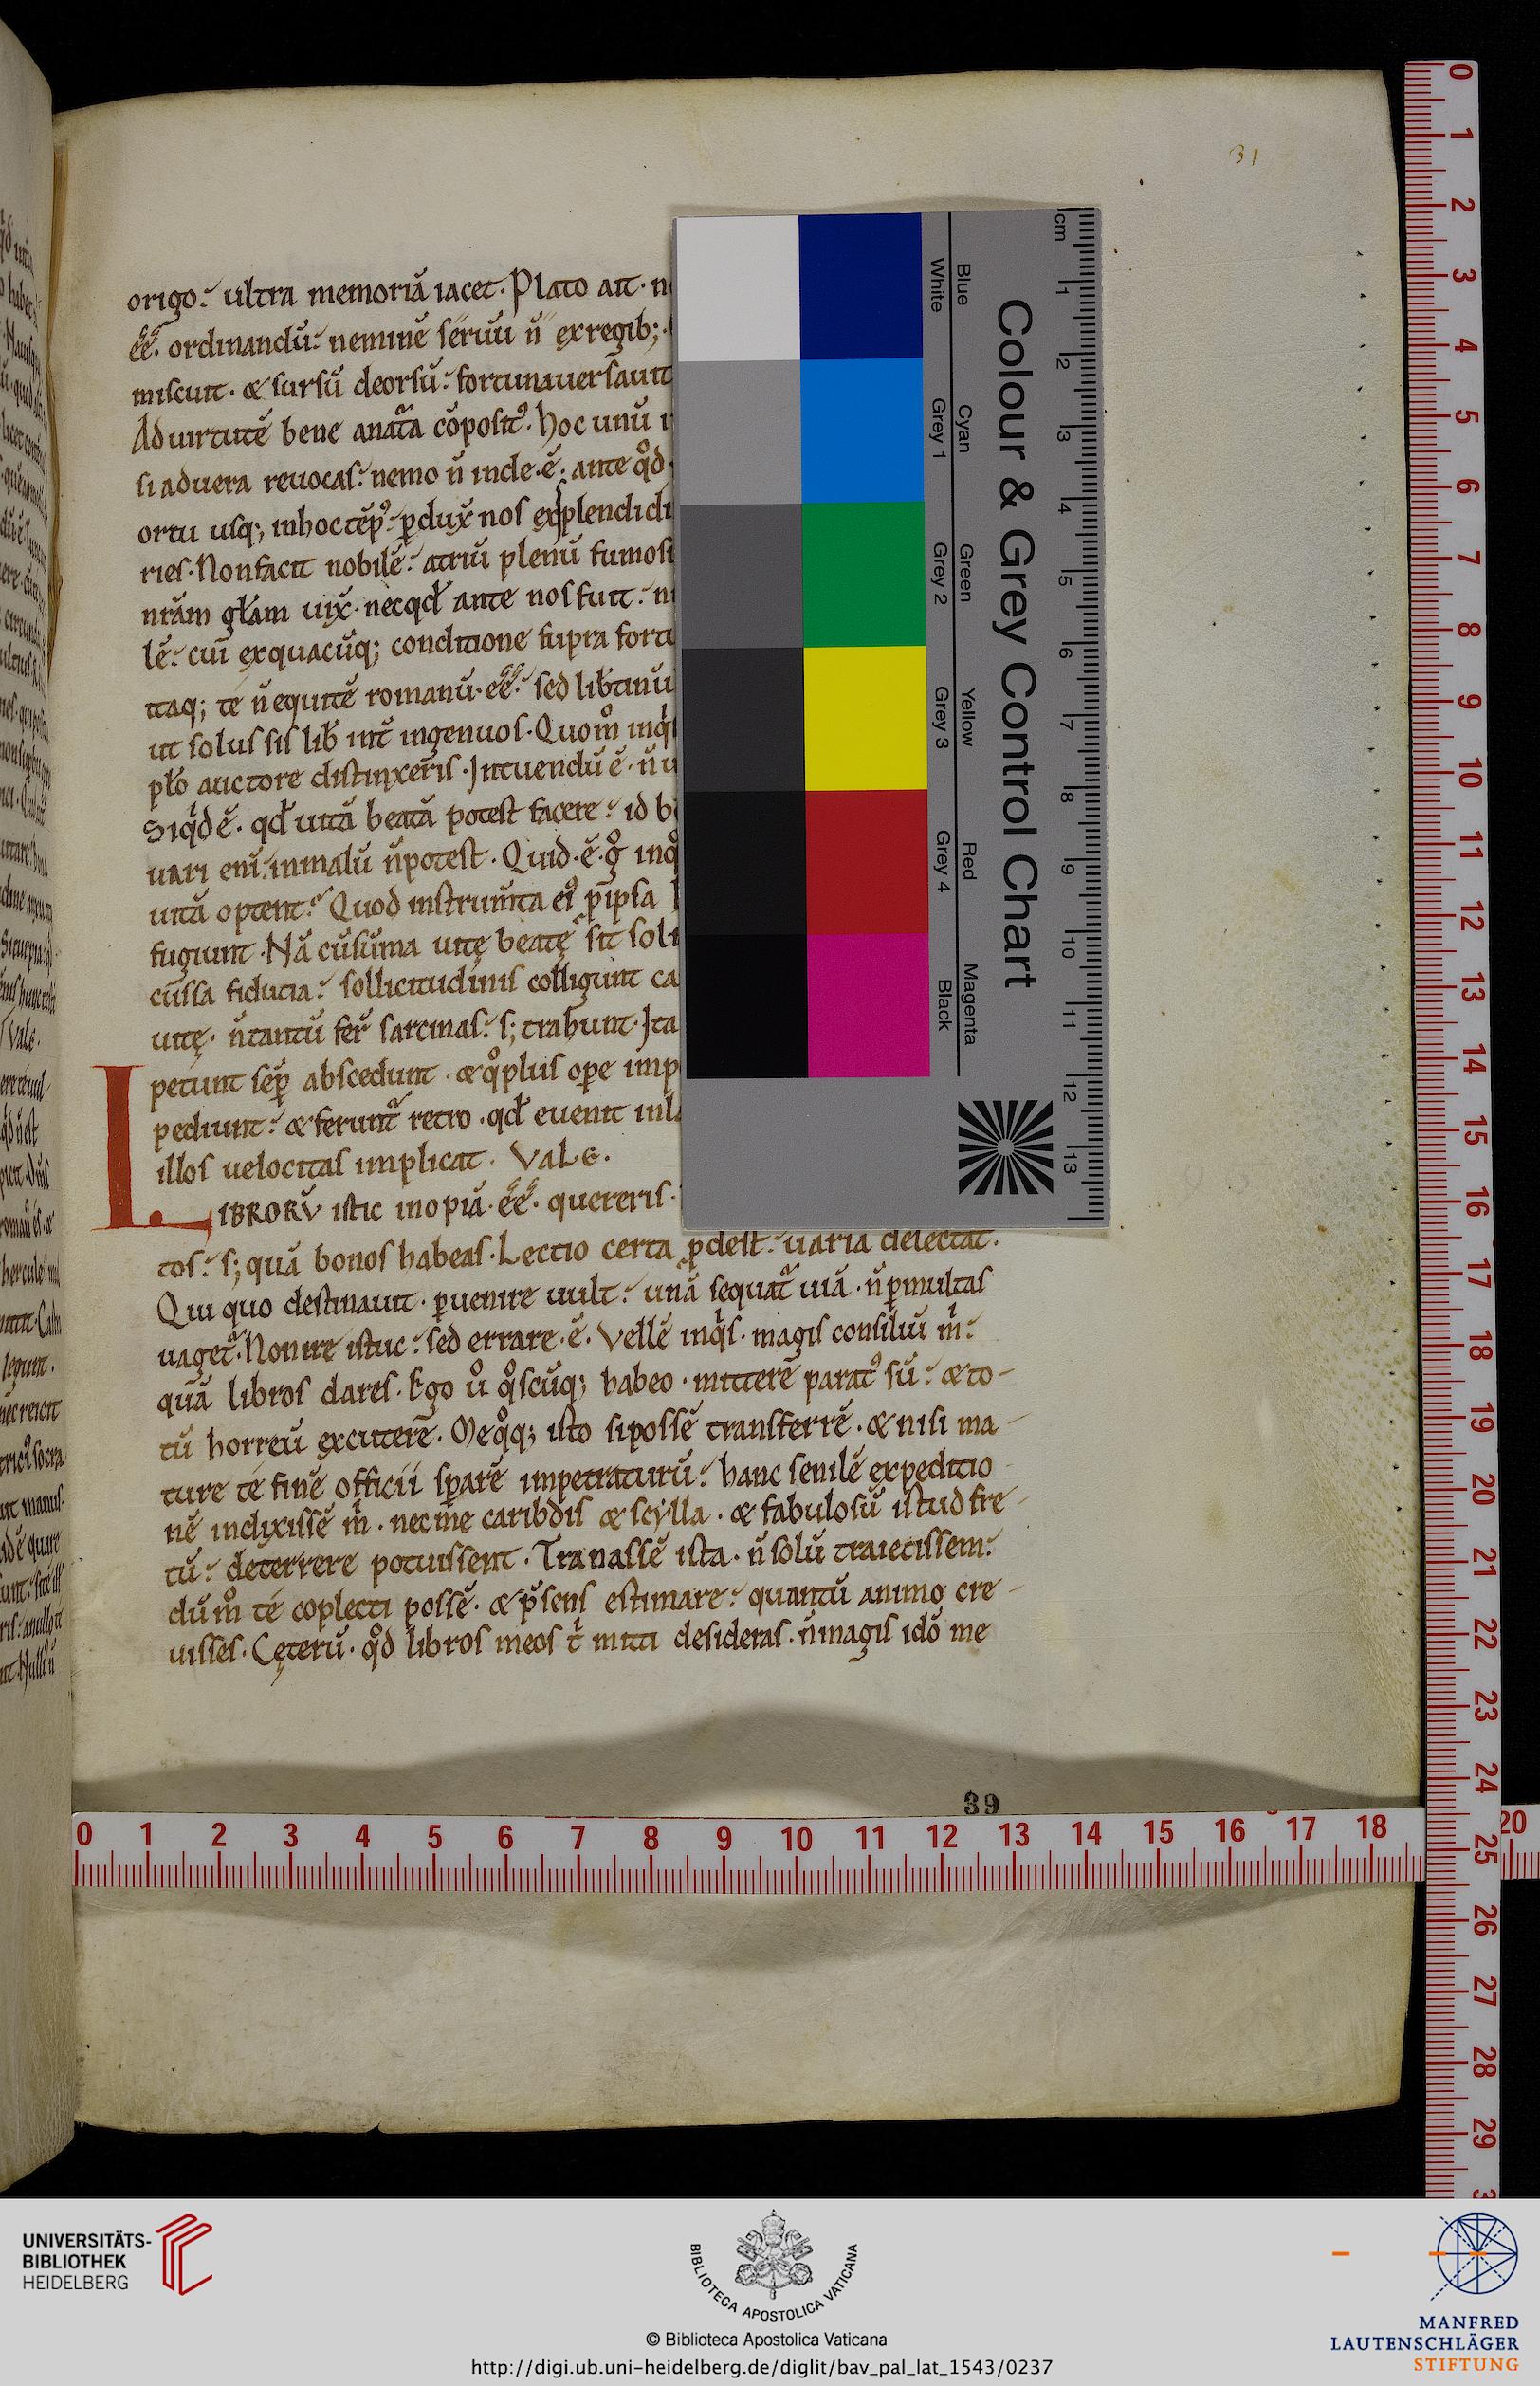 31
origo. ultra memoriā iacet. Plato ait.
ēē. ordinandū. neminē seruū n̄ ex regib;
miscuit. & sursū deorsū. fortuna uersauit
Ad uirtutē bene a natᷓa cōposit᷒. hoc unū
si ad uera reuocas. nemo n̄ inde.ē. ante qͦd
ortu usq; in hoc tēp᷒. ꝑdux̄ nos ex splendidi
ries. Non facit nobilē. atriū plenū fumosi
nrām gl̄am uix̄. nec qd̄ ante nos fuit.
lē. cui ex quacūq; conditione supra
itaq; te n̄ equitē romanū. ēē. sed lib̄tinū
ut solus sis lib̄ int̄ ingenuos. Quom̊ inqͥs
pl̄o auctore distinxeris. Intuendū ē. n̄
Siqͥd ē. qd̄ uitā beatā potest facere. id
uari enī. in malū n̄ potest. Quid.ē.gͦ
uitā optent. Quod instrum̄ta ei᷒ p̄ ipsa
fugiunt. Nā cū sūma uitę beatę sit
cūssa fiducia. sollicitudinis colligunt
uitę. n̄ tantū fer̄ sarcinas. s; trahunt. Ita
petunt sēp̄ abscedunt. & qͦ plus ope
pediunt. & ferunt᷑ retro. qd̄ euenit
illos uelocitas implicat. VALE.
LIBRORV̄ istic inopiā.ēē. quereris.
tos. s; quā bonos habeas. Lectio certa ꝓdest. uaria delectat.
Qui quo destinauit. ꝑuenire uult. unā sequat᷑ uiā. n̄ ꝑ multas
uaget᷑. Non ire istuc. sed errare.ē. Vellē inqͥs. magis consiliū m̄.
quā libros dares. Ego ů qͦscūq; habeo. mitterē parat᷒ sū. & to-
tū horreū excuterē. Me qͦq; isto si possē transferrē. & nisi ma-
ture te finē officii sꝑarē impetraturū. hanc senilē expeditio-
nē indixissē m̄. nec me caribdis & scylla. & fabulosū istud fre-
tū. deterrere potuissent. Tranassē ista. n̄ solū traiecissem.
dum̊ te coplecti possē. & p̄sens estimare. quantū animo cre-
uisses. Cęterū. qͦd libros meos t̄ mitti desideras. n̄ magis idō me
39
Colour & Grey Control Chart
Blue Cyan Green Yellow Red Magenta
White Grey 1 Grey 2 Grey 3 Grey 4 Black
cm 1 2 3 4 5 6 7 8 9 10 11 12 13
0 1 2 3 4 5 6 7 8 9 10 11 12 13 14 15 16 17 18 20
0 1 2 3 4 5 6 7 8 9 10 11 12 13 14 15 16 17 18 19 20 21 22 23 24 25 26 27 28 29
UNIVERSITÄTS-
BIBLIOTHEK
HEIDELBERG
BIBLIOTECA APOSTOLICA VATICANA
© Biblioteca Apostolica Vaticana
http://digi.ub.uni-heidelberg.de/diglit/bav_pal_lat_1543/0237
MANFRED
LAUTENSCHLÄGER
STIFTUNG